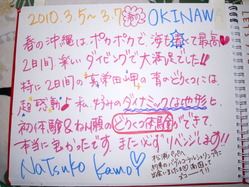 2010.3.5〜3.7 OKINAWA
春の沖縄はポカポカで、海も青で最高♥
2日間 楽しいダイビングで大満足でした!!
特に2日間の真栄田岬の青のどうくつには
超感動♪ 私好みのダイナミックな地形と、
初体験&ねん願のどうくつ体験ができて、
本当に良かったです。またいぜひリベンジします!!
Natsuko Kamo♡